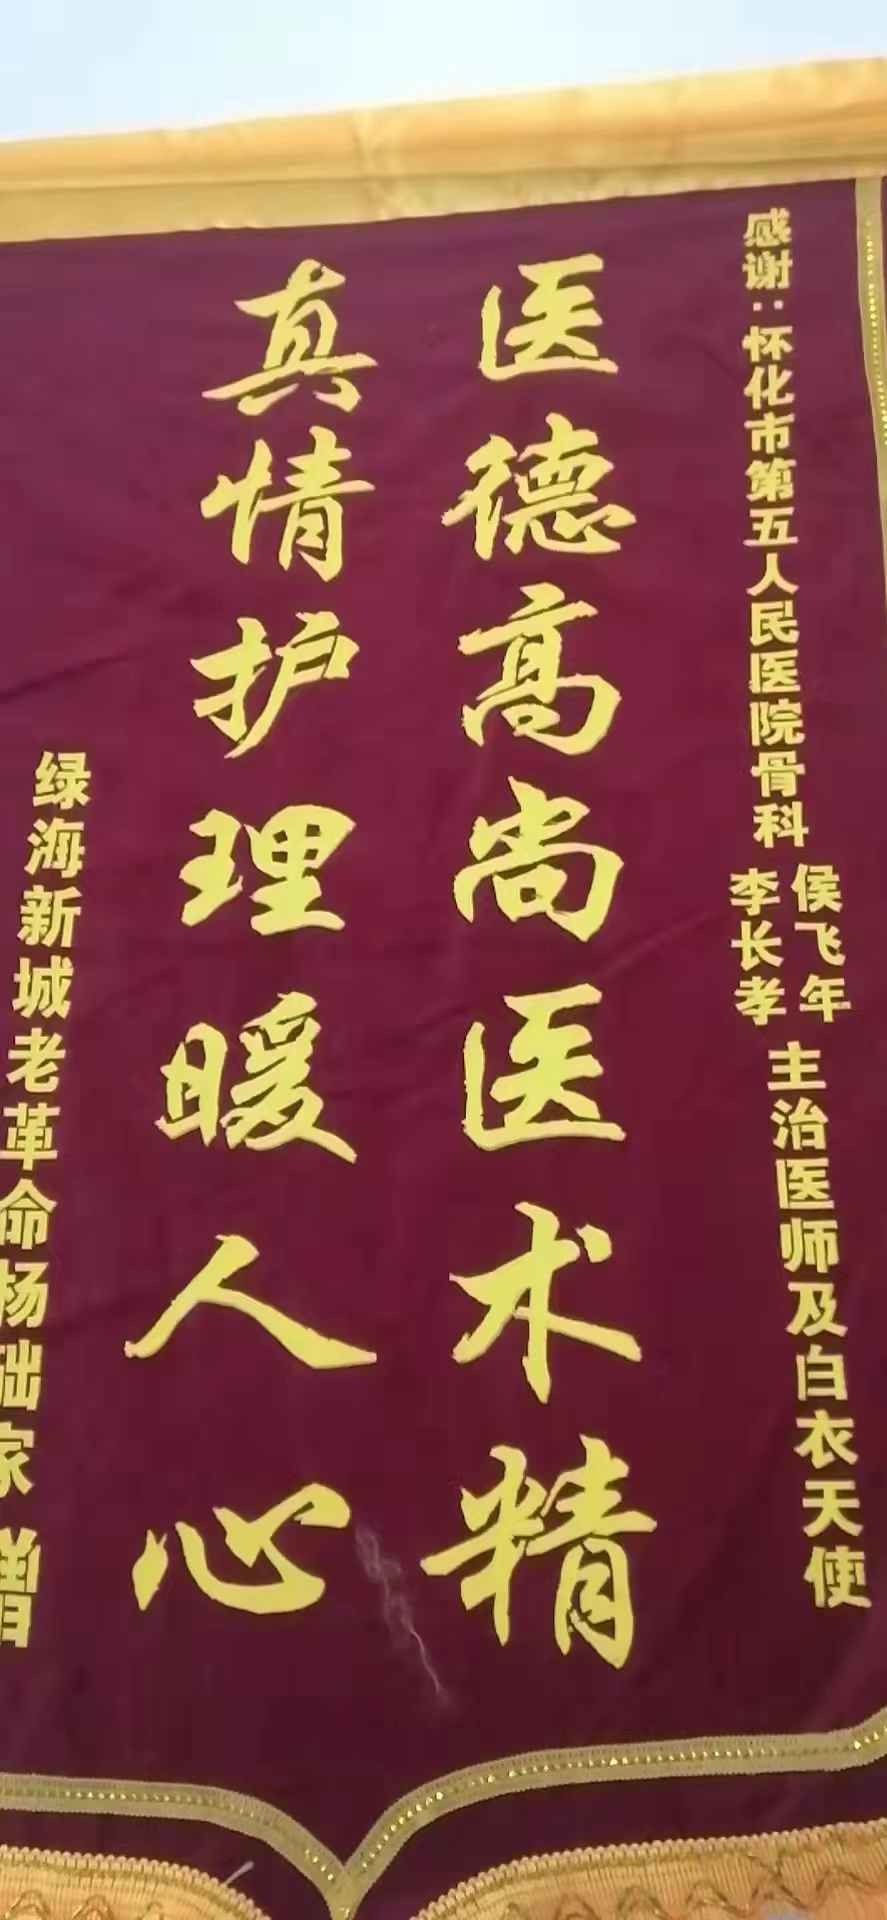 感谢：怀化市第五人民医院骨科
侯飞年
李长孝
主治医师及白衣天使
医德高尚医术精
真情护理暖人心
绿海新城老革命杨础家 赠